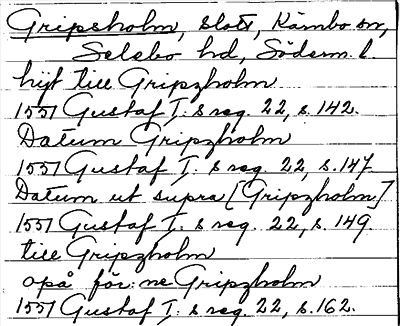 Gripsholm, slott, Kärnbo sn,
Selebo hd, Söderm. l.
hijt till Gripzholm
1551 Gustaf I:s reg. 22, s. 142.
Datum Gripzholm
1551 Gustaf I:s reg. 22, s. 147
Datum ut supra [Gripzholm]
1551 Gustaf I:s reg. 22, s. 149.
till Gripzholm
opå för:ne Gripzholm
1551 Gustaf I:s reg. 22, s. 162.